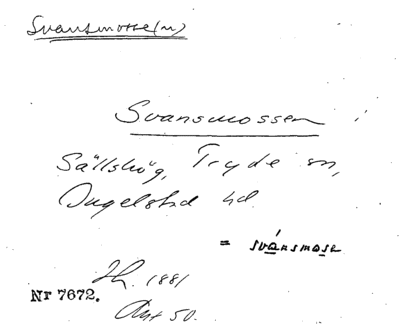 Svansmosse(n)
Svansmossen i
Sällshög, Tryde sn,
Ingelstad hd.
= svánsmose
1881
Nr 7672.
Ant 50.